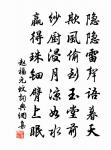 隱隱雷聲語暮天
欺風偷到玉堂前
紗廚浸月涼如水
贏得珠鈿臂上眠
趙福元蚊詞典網集